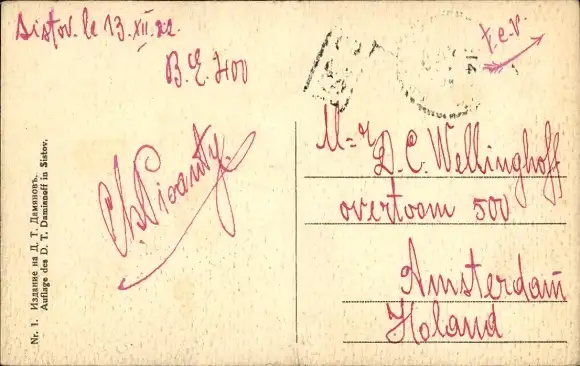 Sistov. le 13. XII. 22
B. E. 400
t.c.v.
M-r
D. C. Wellinghoff
overtoom 500
Amsterdam
Holand
Nr. 1. Издание на Д. Т. Дамяновъ.
Auflage des D. T. Damianoff in Sistov.